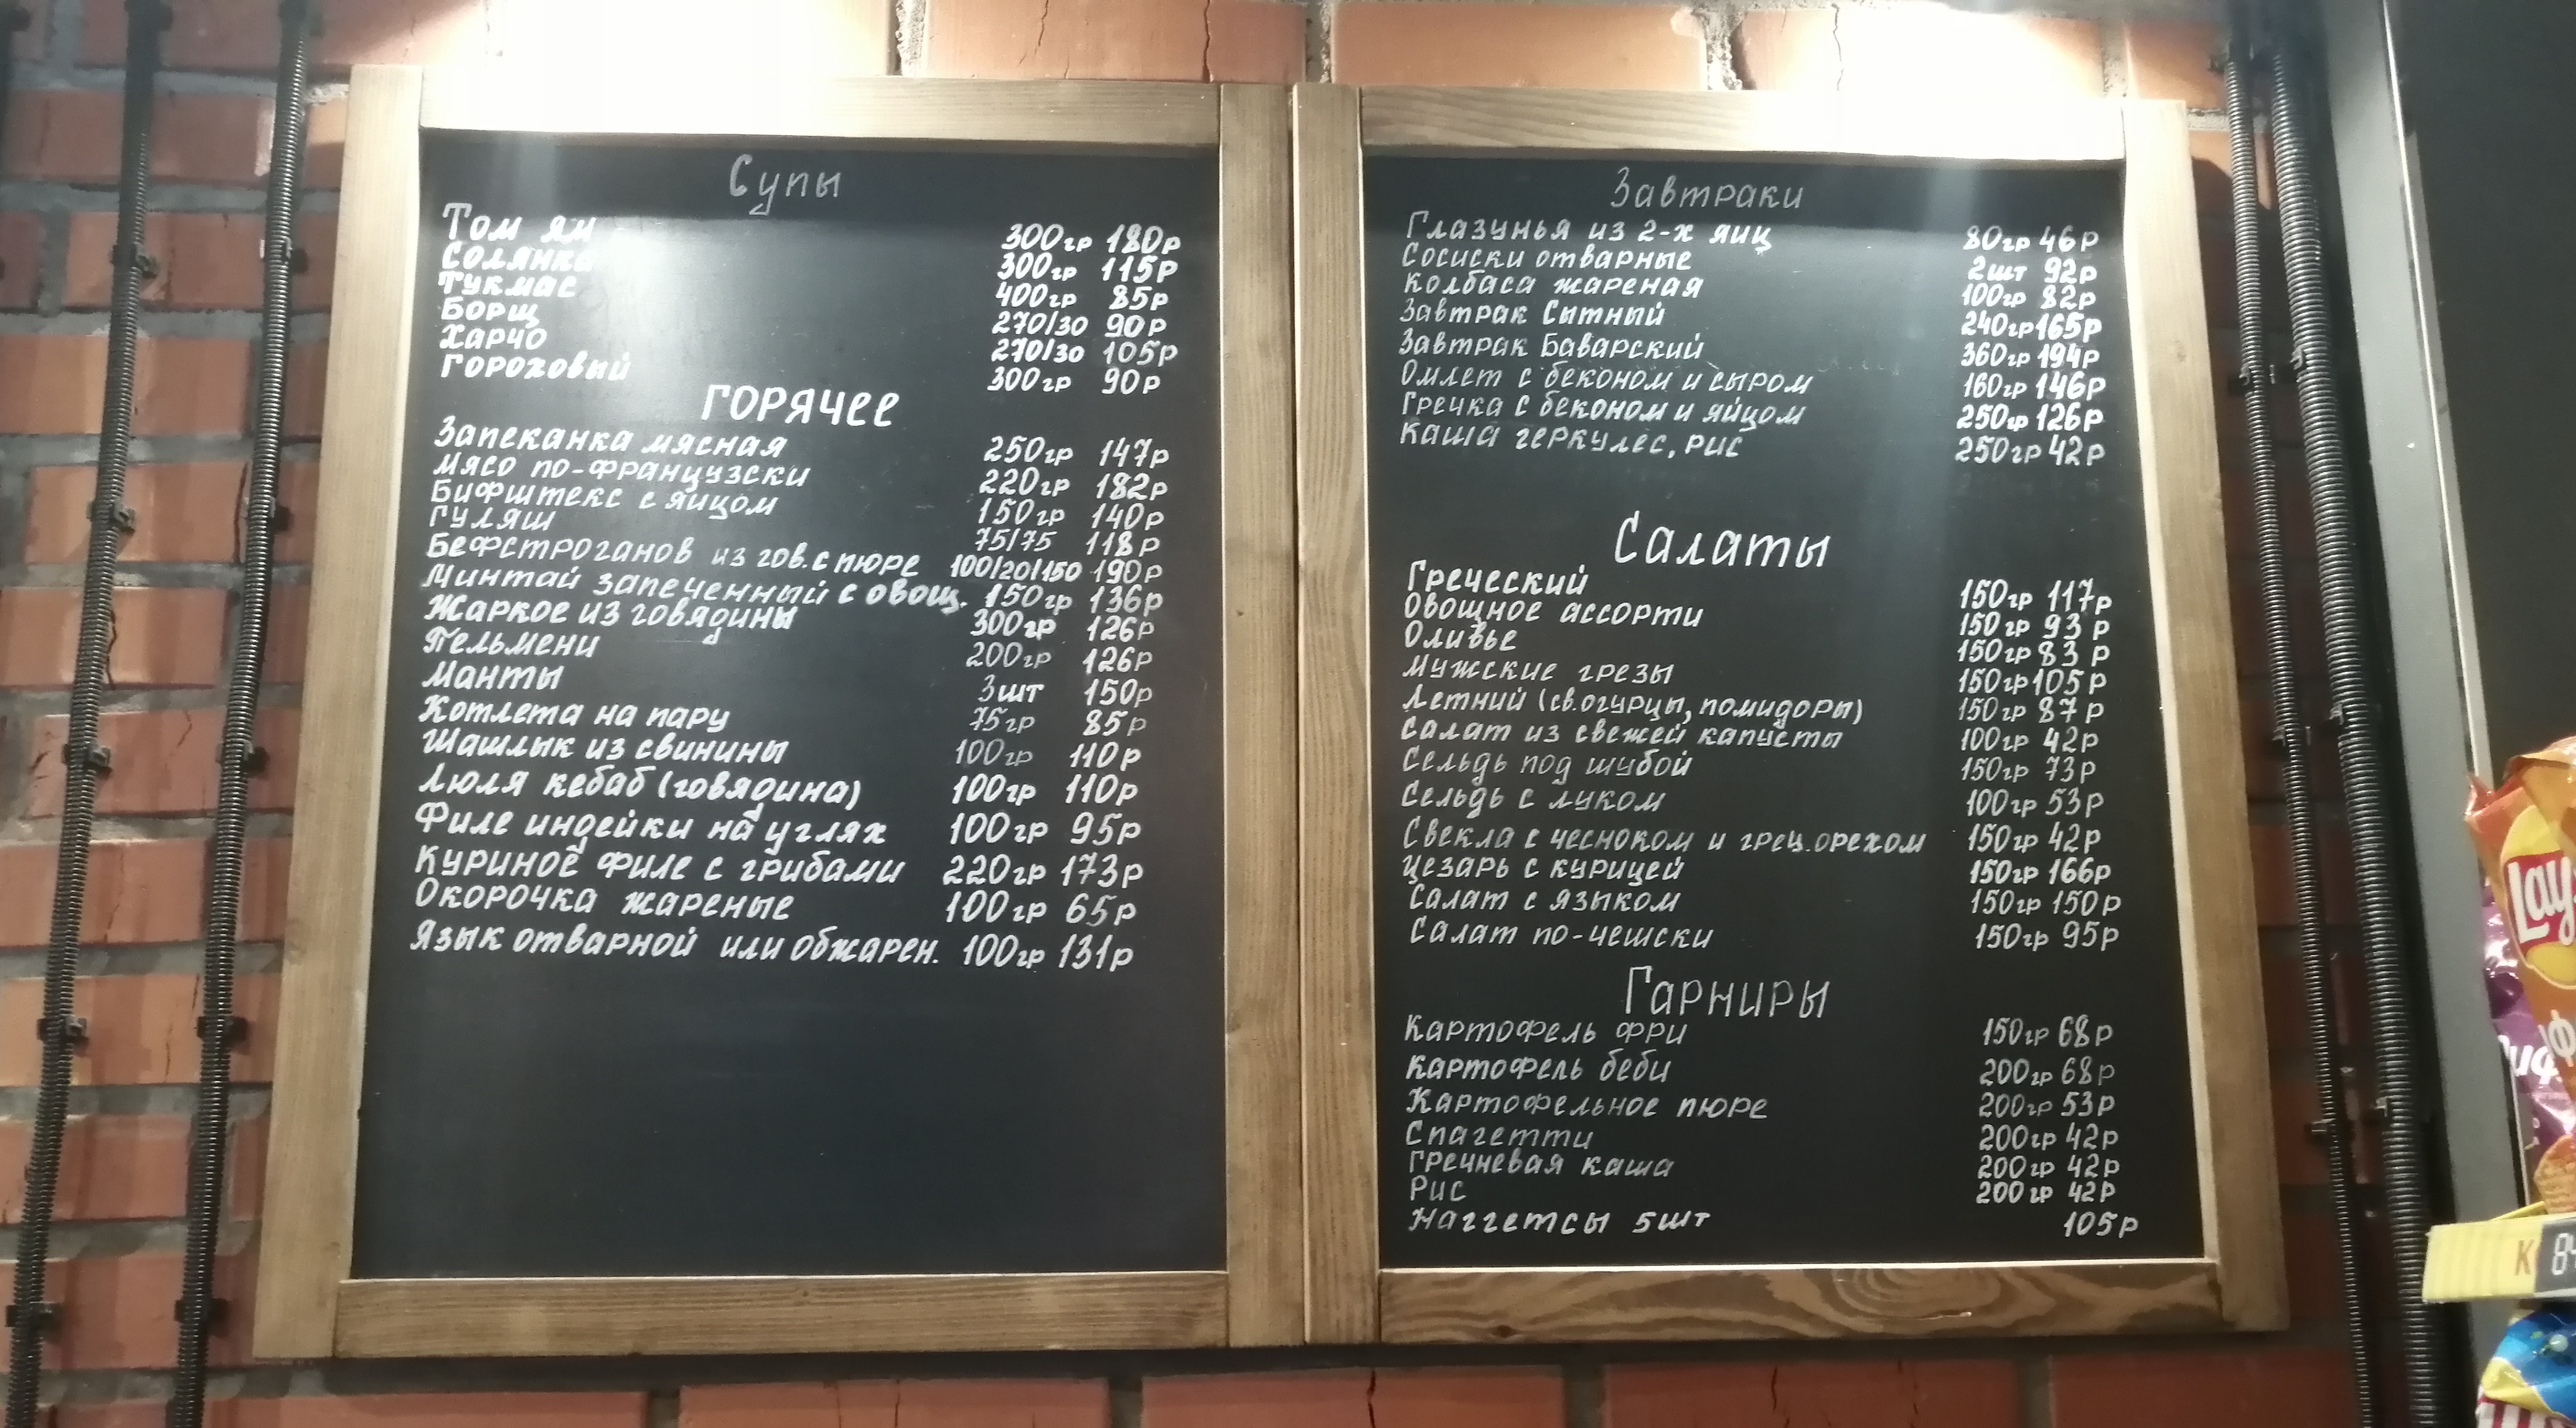 Супы
Том ям 300гр 180р
Солянка 300гр 115р
Тукмас 400гр 85р
Борщ 270/30 90р
Харчо 270/30 105р
Гороховый 300гр 90р
ГОРЯЧЕЕ
Запеканка мясная 250гр 147р
Мясо по-французски 220гр 182р
Бифштекс с яйцом 150гр 140р
Гуляш 75/75 118р
Бефстроганов из гов. с пюре 100/20/150 190р
Минтай запеченный с овощ. 150гр 136р
Жаркое из говядины 300гр 126р
Пельмени 200гр 126р
Манты 3шт 150р
Котлета на пару 75гр 85р
Шашлык из свинины 100гр 110р
Люля кебаб (говядина) 100гр 110р
Филе индейки на углях 100гр 95р
Куриное филе с грибами 220гр 173р
Окорочка жареные 100гр 65р
Язык отварной или обжарен. 100гр 131р
Завтраки
Глазунья из 2-х яиц 80гр 46р
Сосиски отварные 2шт 92р
Колбаса жареная 100гр 82р
Завтрак Сытный 240гр 165р
Завтрак Баварский 360гр 194р
Омлет с беконом и сыром 160гр 146р
Гречка с беконом и яйцом 250гр 126р
Каша геркулес, рис 250гр 42р
Салаты
Греческий 150гр 117р
Овощное ассорти 150гр 93р
Оливье 150гр 83р
Мужские грезы 150гр 105р
Летний (св.огурцы, помидоры) 150гр 87р
Салат из свежей капусты 100гр 42р
Сельдь под шубой 150гр 73р
Сельдь с луком 100гр 53р
Свекла с чесноком и грец.орехом 150гр 42р
Цезарь с курицей 150гр 166р
Салат с языком 150гр 150р
Салат по-чешски 150гр 95р
Гарниры
Картофель фри 150гр 68р
Картофель беби 200гр 68р
Картофельное пюре 200гр 53р
Спагетти 200гр 42р
Гречневая каша 200гр 42р
Рис 200гр 42р
Наггетсы 5шт 105р